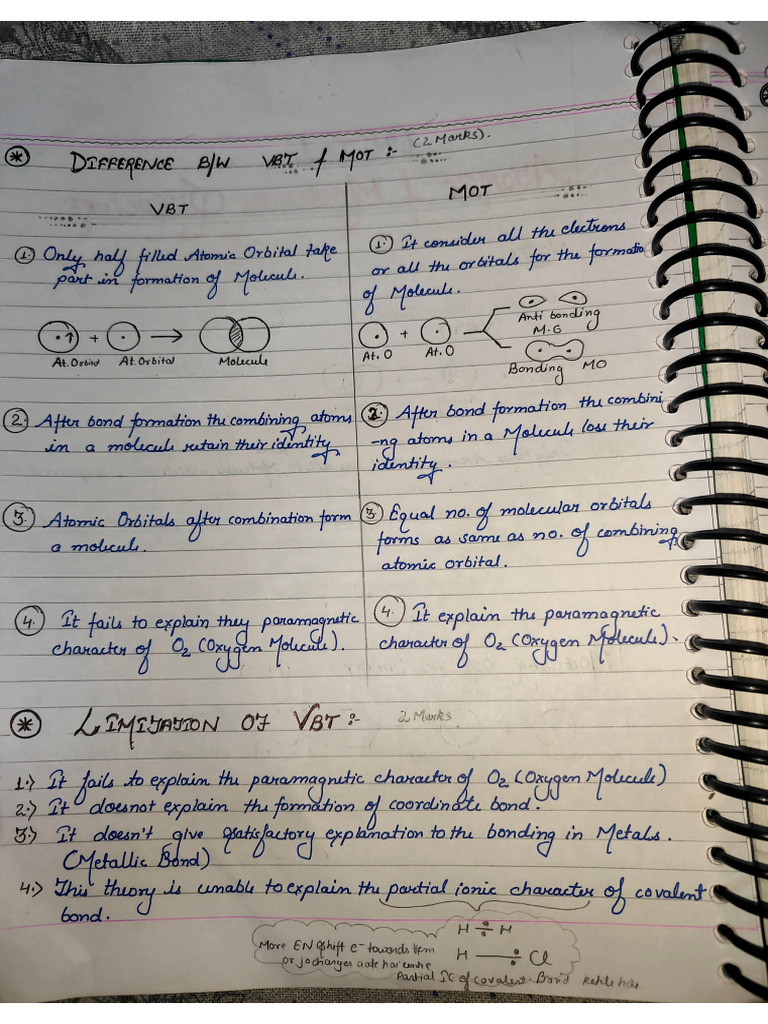 * DIFFERENCE B/W VBT & MOT :- (2 Marks).
VBT
MOT
1. Only half filled Atomic Orbital take
part in formation of Molecule.
At. Orbital At. Orbital Molecule
2. After bond formation the combining atoms
in a molecule retain their identity
3. Atomic Orbitals after combination form
a molecule.
4. It fails to explain they paramagnetic
character of O2 (Oxygen Molecule).
1. It consider all the electrons
or all the orbitals for the formatio
of Molecule.
Anti bonding
M.O
At. O At. O
Bonding MO
2. After bond formation the combini
-ng atoms in a Molecule lose their
identity.
3. Equal no. of molecular orbitals
forms as same as no. of combining
atomic orbital.
4. It explain the paramagnetic
character of O2 (Oxygen Molecule).
* LIMITATION OF VBT :- 2 Marks
1.) It fails to explain the paramagnetic character of O2 (Oxygen Molecule)
2.) It doesnot explain the formation of coordinate bond.
3.) It doesn't give satisfactory explanation to the bonding in Metals.
(Metallic Bond)
4.) This theory is unable to explain the partial ionic character of covalent
bond.
H ÷ H
More EN shift e- towards them
H — : Cl
or jo changes aate hai
Partial IC of covalent Bond kehte hai